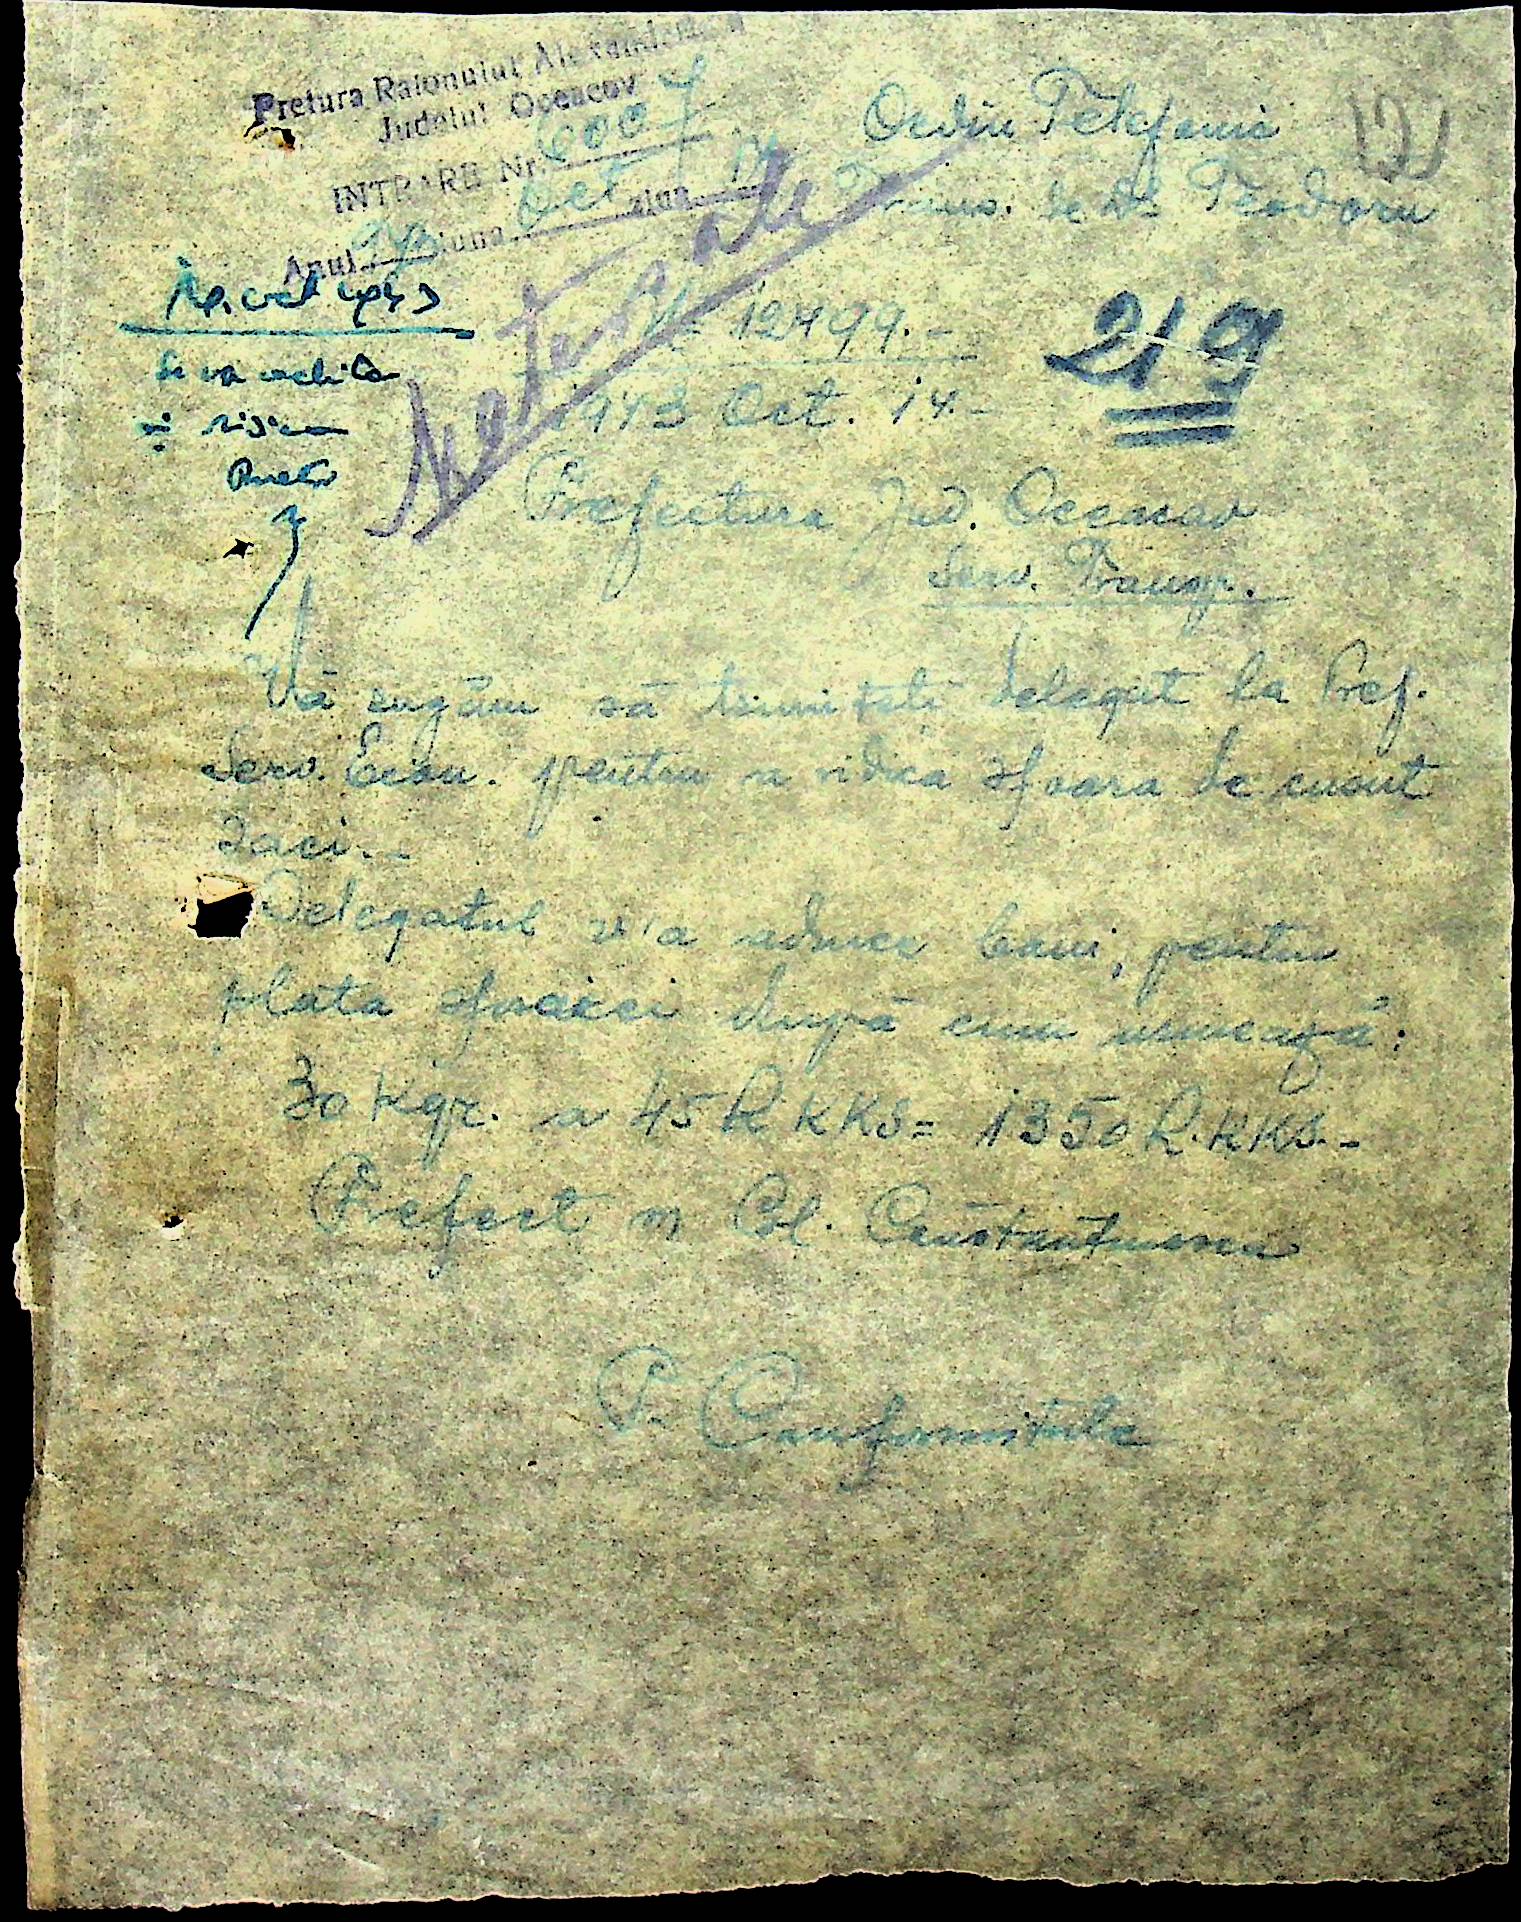 Pretura Raionului Alexandrovca
Judetul Oceacov
INTRARE Nr. 6007
Anul 943 luna Oct ziua 14
Ordin Telefonic
Trans. de Dl Teodoru
Materiale
Nr. 12499.-
219
1943 Oct. 14.-
Se va achita
și ridica
Pretor
Prefectura Jud. Oceacov
Serv. Transp.
Vă rugăm să trimiteti delegat la Pref.
Serv. Econ. pentru a ridica sfoara de cusut
saci.-
Delegatul v'a aduce bani, pentru
plata sfoarei după cum urmează:
30 Kgr. a 45 R.KKS = 1350 R.KKS.-
Prefect m Col. Constantinescu
P. Conformitate